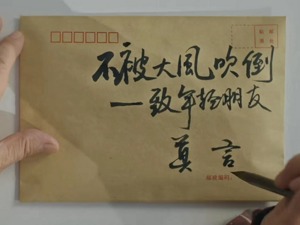 不被大风吹倒
一致年轻朋友
莫言
邮政编码: